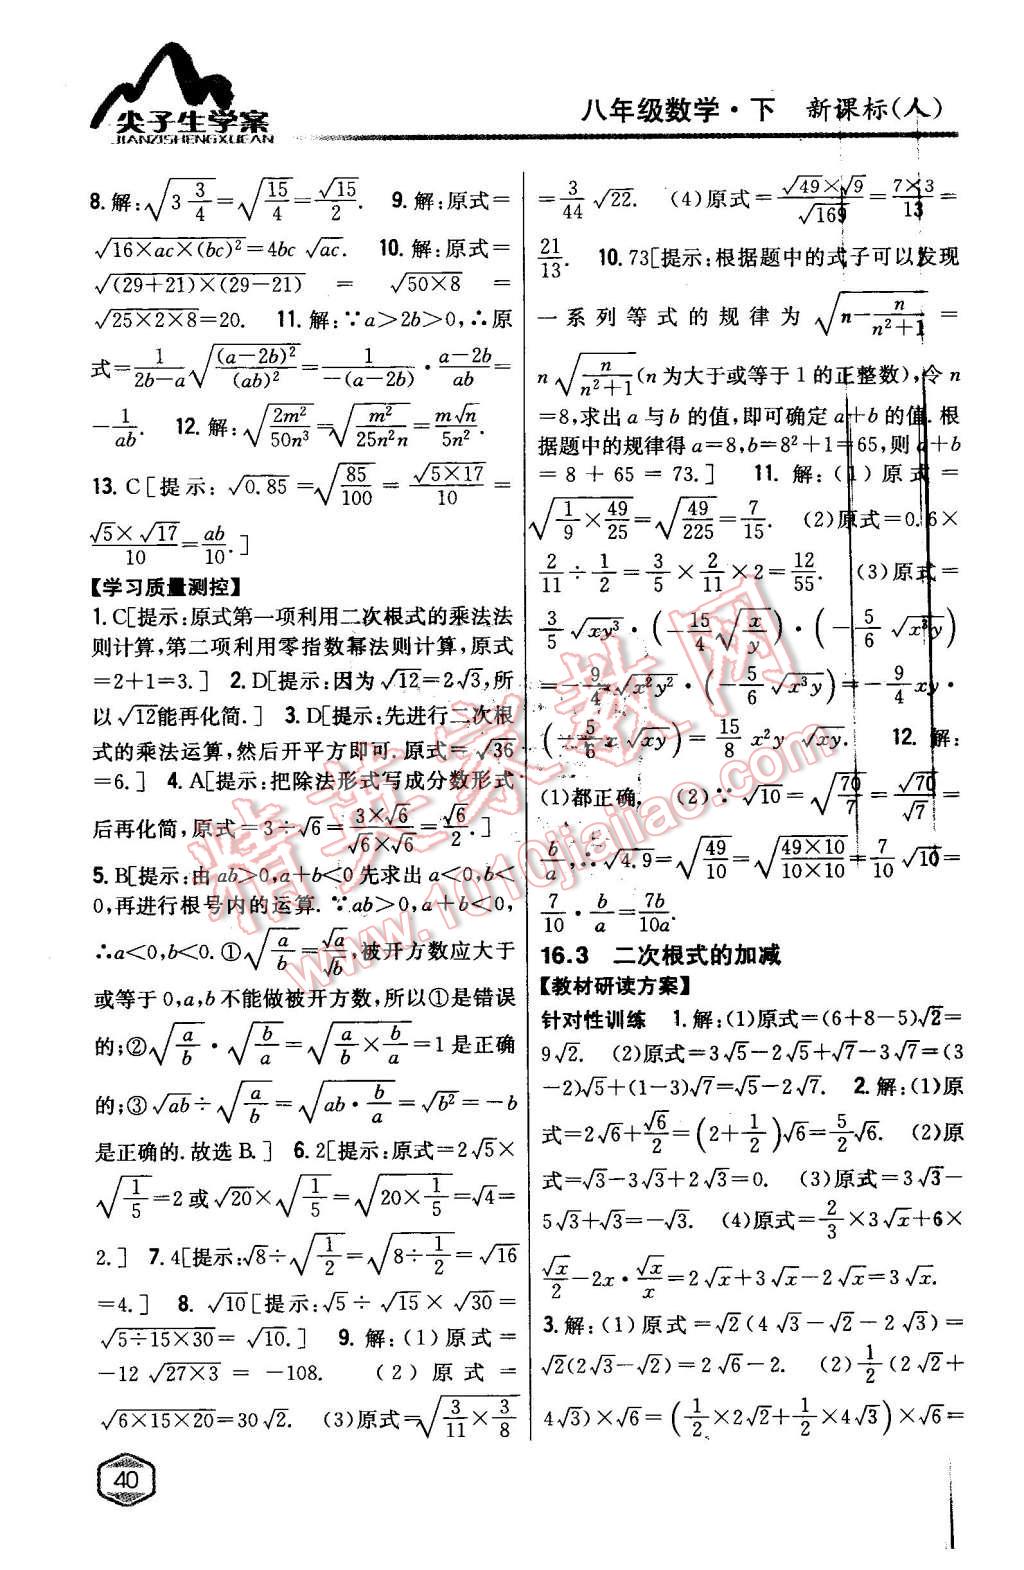 尖子生学案
JIANZISHENGXUEAN
八年级数学·下 新课标(人)
8.解:√(3 3/4)=√(15/4)=√15/2. 9.解:原式=
√(16×ac×(bc)²)=4bc√ac. 10.解:原式=
√((29+21)×(29-21)) = √(50×8) =
√(25×2×8)=20. 11.解:∵a>2b>0,∴原
式=1/(2b-a)√((a-2b)²/(ab)²)=1/(-(a-2b))·(a-2b)/ab=
-1/ab. 12.解:√(2m²/50n³)=√(m²/25n²n)=m√n/5n².
13.C[提示:√0.85=√(85/100)=√(5×17)/10=
√5×√17/10=ab/10.]
【学习质量测控】
1.C[提示:原式第一项利用二次根式的乘法法
则计算,第二项利用零指数幂法则计算,原式
=2+1=3.] 2.D[提示:因为√12=2√3,所
以√12能再化简.] 3.D[提示:先进行二次根
式的乘法运算,然后开平方即可.原式=√36
=6.] 4.A[提示:把除法形式写成分数形式
后再化简,原式=3÷√6=3×√6/(√6×√6)=√6/2.]
5.B[提示:由ab>0,a+b<0先求出a<0,b<
0,再进行根号内的运算.∵ab>0,a+b<0,
∴a<0,b<0.①√(a/b)=√a/√b,被开方数应大于
或等于0,a,b不能做被开方数,所以①是错误
的;②√(a/b)·√(b/a)=√(a/b×b/a)=1是正确
的;③√ab÷√(a/b)=√(ab·b/a)=√b²=-b
是正确的.故选B.] 6.2[提示:原式=2√5×
√(1/5)=2或√20×√(1/5)=√(20×1/5)=√4=
2.] 7.4[提示:√8÷√(1/2)=√(8÷1/2)=√16
=4.] 8.√10[提示:√5÷√15×√30=
√(5÷15×30)=√10.] 9.解:(1)原式=
-12√(27×3)=-108. (2)原式=
√(6×15×20)=30√2. (3)原式=√(3/11×3/8)
=3/44√22. (4)原式=√49×√9/√169=7×3/13=
21/13. 10.73[提示:根据题中的式子可以发现
一系列等式的规律为√(n-n/(n²+1))=
n√(n/(n²+1))(n为大于或等于1的正整数),令n
=8,求出a与b的值,即可确定a+b的值.根
据题中的规律得a=8,b=8²+1=65,则a+b
=8+65=73.] 11.解:(1)原式=
√(1/9×49/25)=√(49/225)=7/15. (2)原式=0.6×
2/11÷1/2=3/5×2/11×2=12/55. (3)原式=
3/5√xy³·(-15/4√(x/y))·(-5/6√x³y)
=-9/4√x²y²·(-5/6√x³y)=-9/4xy·
(-5/6x√xy)=15/8x²y√xy. 12.解:
(1)都正确. (2)∵√10=√(70/7)=√70/√7=
b/a,∴√4.9=√(49/10)=√(49×10/10×10)=7/10√10=
7/10·b/a=7b/10a.
16.3 二次根式的加减
【教材研读方案】
针对性训练 1.解:(1)原式=(6+8-5)√2=
9√2. (2)原式=3√5-2√5+√7-3√7=(3
-2)√5+(1-3)√7=√5-2√7. 2.解:(1)原
式=2√6+√6/2=(2+1/2)√6=5/2√6. (2)原
式=√3-3√3+2√3=0. (3)原式=3√3-
5√3+√3=-√3. (4)原式=2/3×3√x+6×
√x/2-2x·√x/x=2√x+3√x-2√x=3√x.
3.解:(1)原式=√2(4√3-√2-2√3)=
√2(2√3-√2)=2√6-2. (2)1/2(2√2+
4√3)×√6=(1/2×2√2+1/2×4√3)×√6=
40
精英家教网
www.1010jiajiao.com